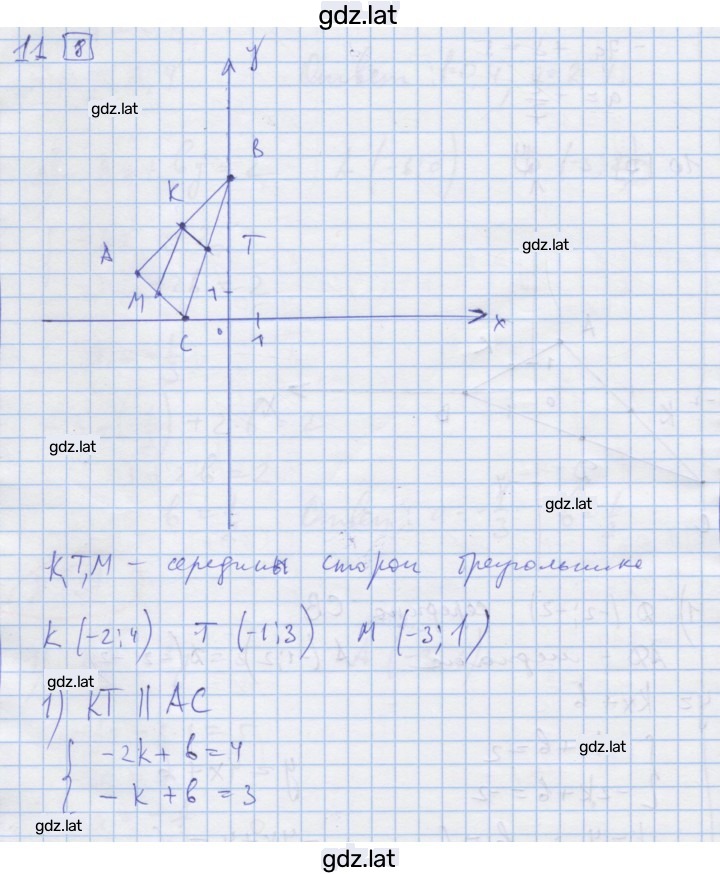 gdz.lat
11 8
gdz.lat
y
B
K
gdz.lat
T
A
M
1
x
C
0
1
gdz.lat
gdz.lat
K,T,M – середины сторон треугольника
K (-2;4) T (-1;3) M (-3;1)
gdz.lat
1) KT || AC
-2k + b = 4
gdz.lat
-k + b = 3
gdz.lat
gdz.lat